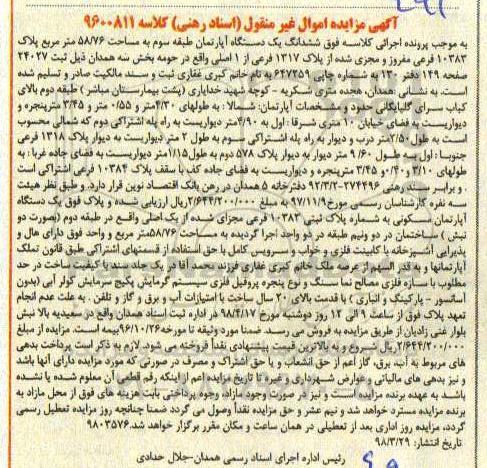 آگهی مزایده اموال غیر منقول (اسناد رهنی) کلاسه ۹۶۰۰۸۱۱
به موجب پرونده اجرائی کلاسه فوق ششدانگ یک دستگاه آپارتمان طبقه سوم به مساحت ۵۸/۷۶ متر مربع پلاک
۱۰۳۸۳ فرعی مفروز و مجزی شده از پلاک ۱۳۱۷ فرعی از ۱ اصلی واقع در حومه بخش سه همدان ذیل ثبت ۲۴۰۲۷
صفحه ۱۴۹ دفتر ۱۳۰ به شماره چاپی ۶۴۷۳۵۹ به نام خانم کبری غفاری ثبت و سند مالکیت صادر و تسلیم شده
است. به نشانی: همدان، هجده متری شکریه - کوچه شهید خدایاری (پشت بیمارستان مباشر) طبقه دوم بالای
کباب سرای گلپایگانی حدود و مشخصات آپارتمان: شمالا: به طولهای ۴/۳۰متر و ۰/۵۵ متر و ۳/۴۵ متر پنجره و
دیواریست به فضای خیابان ۱۰ متری شرقا: اول به ۶/۹۰متر دیواریست به راه پله اشتراکی دوم که شمالی محسوب
است به طول ۳/۵۰متر درب و دیوار به راه پله اشتراکی سوم به طول ۲ متر دیواریست به دیوار پلاک ۱۳۱۸ فرعی
جنوبا: اول به طول ۹/۶۰ متر دیوار به دیوار پلاک ۵۷۸ دوم به طول ۱/۱۵متر دیواریست به فضای جاده غربا: به
طولهای ۳/۱۰ و ۰/۴۰ و ۳/۴۵ متر پنجره و دیواریست به فضای جاده کف با سقف پلاک ۱۰۳۸۴ فرعی اشتراکی است
و برابر سند رهنی ۲۷۴۴۹۶-۹۲/۳/۲ دفترخانه ۵ همدان در رهن بانک اقتصاد نوین قرار دارد. و طبق نظر هیئت
سه نفره کارشناسان رسمی مورخ ۹۷/۱۱/۹ به مبلغ ۲/۶۴۴/۲۰۰/۰۰۰ریال ارزیابی شده و پلاک فوق یک دستگاه
آپارتمان مسکونی به شماره پلاک ثبتی ۱۰۳۸۳ فرعی مجزای شده از یک اصلی واقع در طبقه دوم (بصورت دو
نبش) ساختمان در دو ونیم طبقه در دو واحد اجرا گردیده به مساحت ۵۸/۷۶متر مربع و واحد فوق دارای هال و
پذیرایی آشپزخانه با کابینت فلزی و خواب و سرویس کامل با حق استفاده از قسمتهای اشتراکی طبق قانون تملک
آپارتمانها و به قدر السهم از عرصه ملک خانم کبری غفاری فرزند محمد آقا در یک جلد سند با کیفیت ساخت در حد
مطلوب با سازه فلزی مصالح نما سنگ و نوع پنجره پروفیل فلزی سیستم گرمایش پکیج سرمایش کولر آبی (بدون
آسانسور - پارکینگ و انباری) با قدمت بالای ۲۰ سال ساخت با امتیازات آب و برق و گاز و تلفن . به علت عدم انجام
تعهد پلاک فوق از ساعت ۹ الی ۱۲ روز دوشنبه مورخ ۹۸/۴/۱۷ در اداره ثبت اسناد همدان واقع در سعیدیه بالا نبش
بلوار غنی زادیان از طریق مزایده به فروش می رسد. ضمنا مورد وثیقه تا مورخه ۹۶/۱۰/۲۶ بیمه است. مزایده از مبلغ
۲/۶۴۴/۲۰۰/۰۰۰ریال شروع و به بالاترین قیمت پیشنهادی نقداً فروخته می شود. لازم به ذکر است پرداخت بدهی
های مربوط به آب، برق، گاز اعم از حق انشعاب و یا حق اشتراک و مصرف در صورتی که مورد مزایده دارای آنها باشد
و نیز بدهی های مالیاتی و عوارض شهرداری و غیره تا تاریخ مزایده اعم از اینکه رقم قطعی آن معلوم شده یا نشده
باشد به عهده برنده مزایده است و نیز در صورت وجود مازاد، وجوه پرداختی بابت هزینه های فوق از محل مازاد به
برنده مزایده مسترد خواهد شد و نیم عشر و حق مزایده نقداً وصول می گردد ضمنا چنانچه روز مزایده تعطیل رسمی
گردد، مزایده روز اداری بعد از تعطیلی در همان ساعت و مکان مقرر برگزار خواهد شد. ۹۸۰۳۵۷۶
تاریخ انتشار: ۹۸/۳/۲۹
رئیس اداره اجرای اسناد رسمی همدان-جلال حدادی